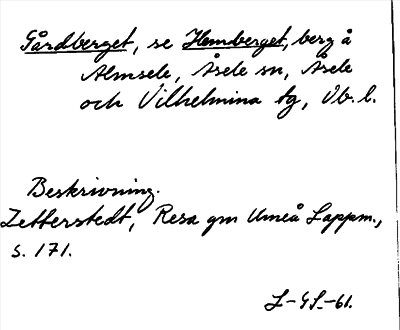 Gårdberget, se Hemberget, berg å
Almsele, Åsele sn, Åsele
och Vilhelmina tg, Vb. l.
Beskrivning.
Zetterstedt, Resa gm Umeå Lappm.,
s. 171.
L-GS-61.